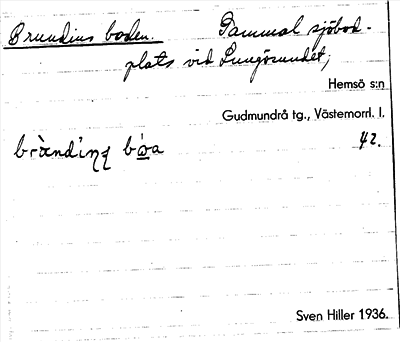 Brundins boden. Gammal sjöbod-
plats vid Lungösundet,
Hemsö s:n
Gudmundrå tg., Västernorrl. l.
42.
Sven Hiller 1936.